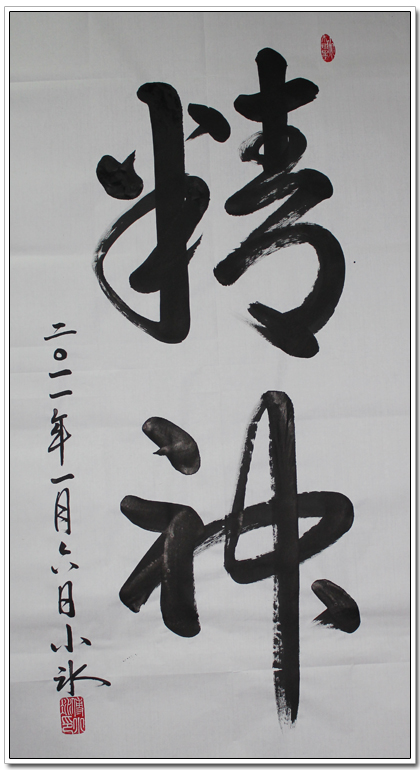 精神
二〇一一年一月六日小冰